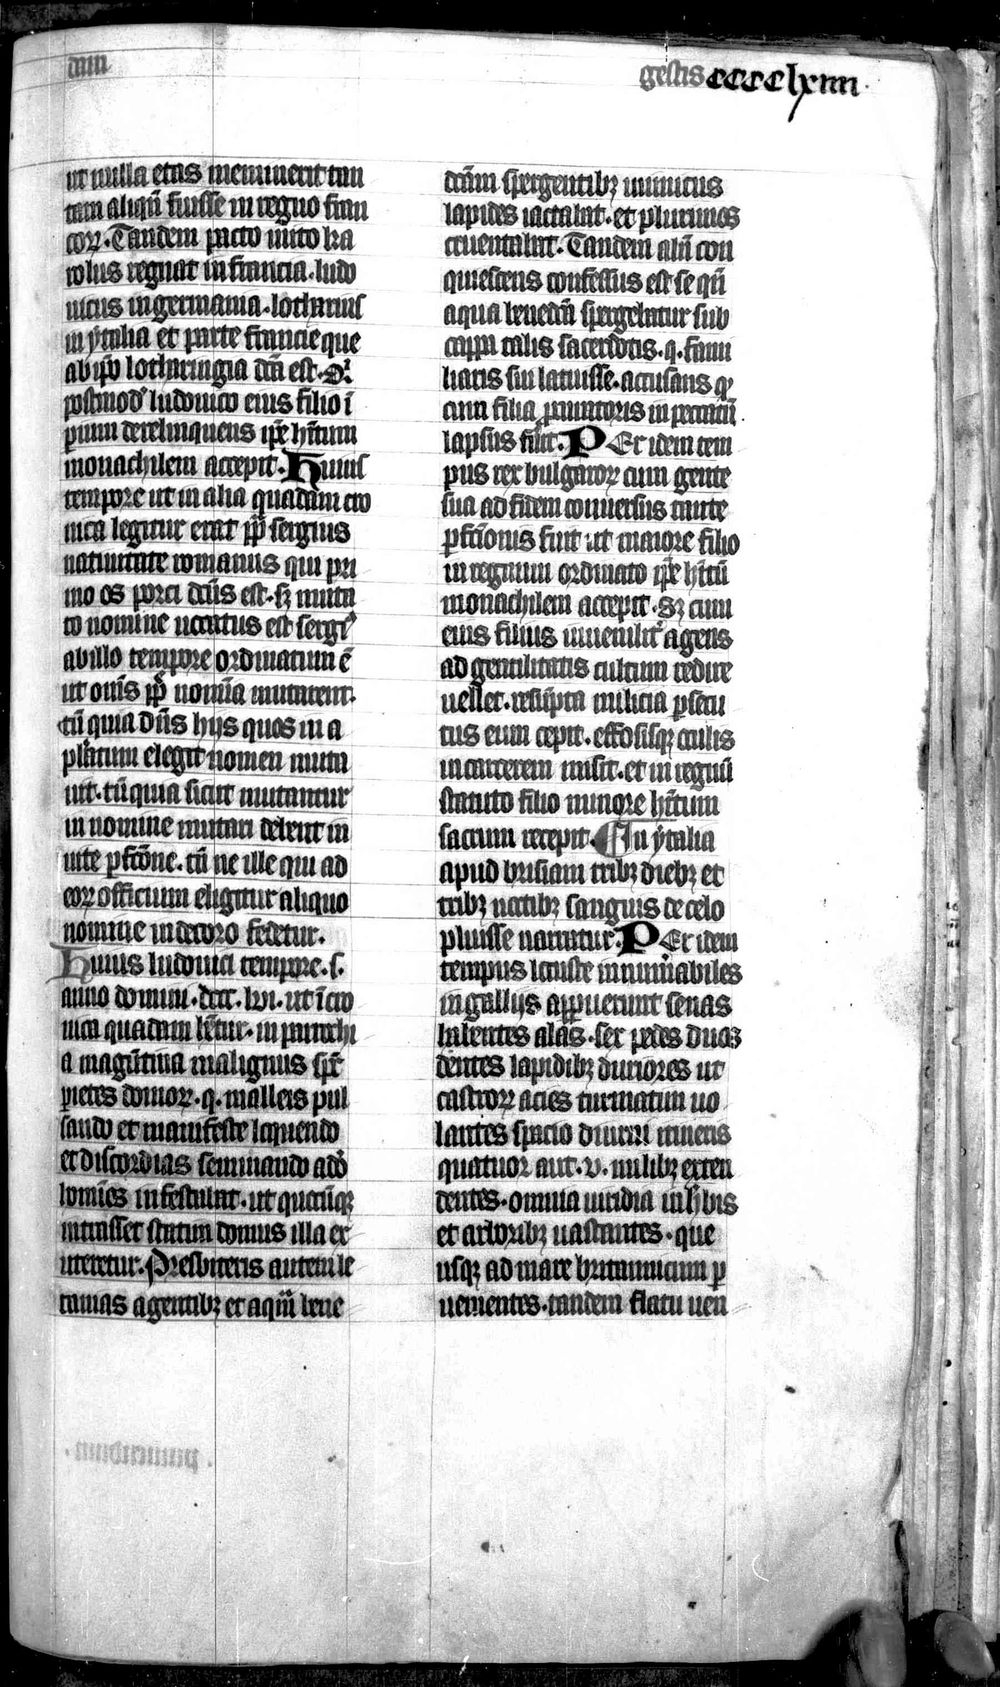 gestis cccclxiiii
ut nulla etas meminerit tan
tam aliquā fuisse in regno fran
coꝝ. Tandem pacto inito ka
rolus regnat in francia. ludo
uicus in germania. lotharius
in ytalia et parte francie que
ab ip̄o lotharingia dc̄a est.
postmodͦ ludouico eius filio ī
perium derelinquens ip̄e hītum
monachilem accepit. Huius
tempore ut in alia quadam cro
nica legitur erat pp̄ sergius
natiuitate romanus qui pri
mo os porci dc̄us est. sꝫ muta
to nomine uocatus est sergiꝰ
ab illo tempore ordinatum ē
ut om̄s pp̄e nomīa mutarent.
tū quia dn̄s hijs quos in a
pl̄atum elegit nomen muta
uit. tū quia sicut mutantur
in nomine mutari debent in
uite ꝑfc̄one. tū ne ille qui ad
eoꝝ officium eligitur aliquo
nomine indecoro fedetur.
Huius ludouici tempore. s.
anno domini. dccc. lvi. ut ī cro
nica quadam lr̄tur. in parrochi
a magūtina malignus sp̄c
ꝑietes domoꝝ. q. malleis pul
sando et manifeste loquendo
et discordias seminando adͦ
homīes infestabat. ut quocūqꝫ
intrasset statim domus illa ex
ureretur. Presbiteris autem le
tanias agentibꝫ et aquā bene
dc̄am spergentibꝫ inimicus
lapides iactabat. et plurimos
cruentabat. Tandem aliq̄n con
quiescens confessus est se q̄n
aqua benedc̄a spergebatur sub
cappa talis sacerdotis. q. fami
liaris sui latuisse. accusans qͥ
cum filia ꝓcuratoris in peccatū
lapsus fūit. Per idem tem
pus rex bulgaroꝝ cum gente
sua ad fidem conuersus tante
ꝑfc̄ionis fuit ut maiore filio
in regnum ordinato ip̄e hītū
monachilem accepit. Sꝫ cum
eius filius iuueniliter agens
ad gentilitatis cultum redire
uellet. resūpta milicia ꝑsecu
tus eum cepit. effosisqꝫ oculis
in carcerem misit. et in regnū
statuto filio minore hītum
sacrum recepit. In ytalia
apud brixiam tribꝫ diebꝫ et
tribꝫ noctibꝫ sanguis de celo
pluisse narratur. Per idem
tempus locuste innumīabiles
in gallijs apparuerunt senas
habentes alas. sex pedes duoꝫ
dentes lapidibꝫ duriores ut
castroꝝ acies turmatim uo
lantes spacio diurni itineris
quatuor aut. v. milibꝫ exten
dentes. omnia uiridia in h̄bis
et arboribꝫ uastantes. que
usqꝫ ad mare britannicum ꝑ
uenientes. tandem flatu uen